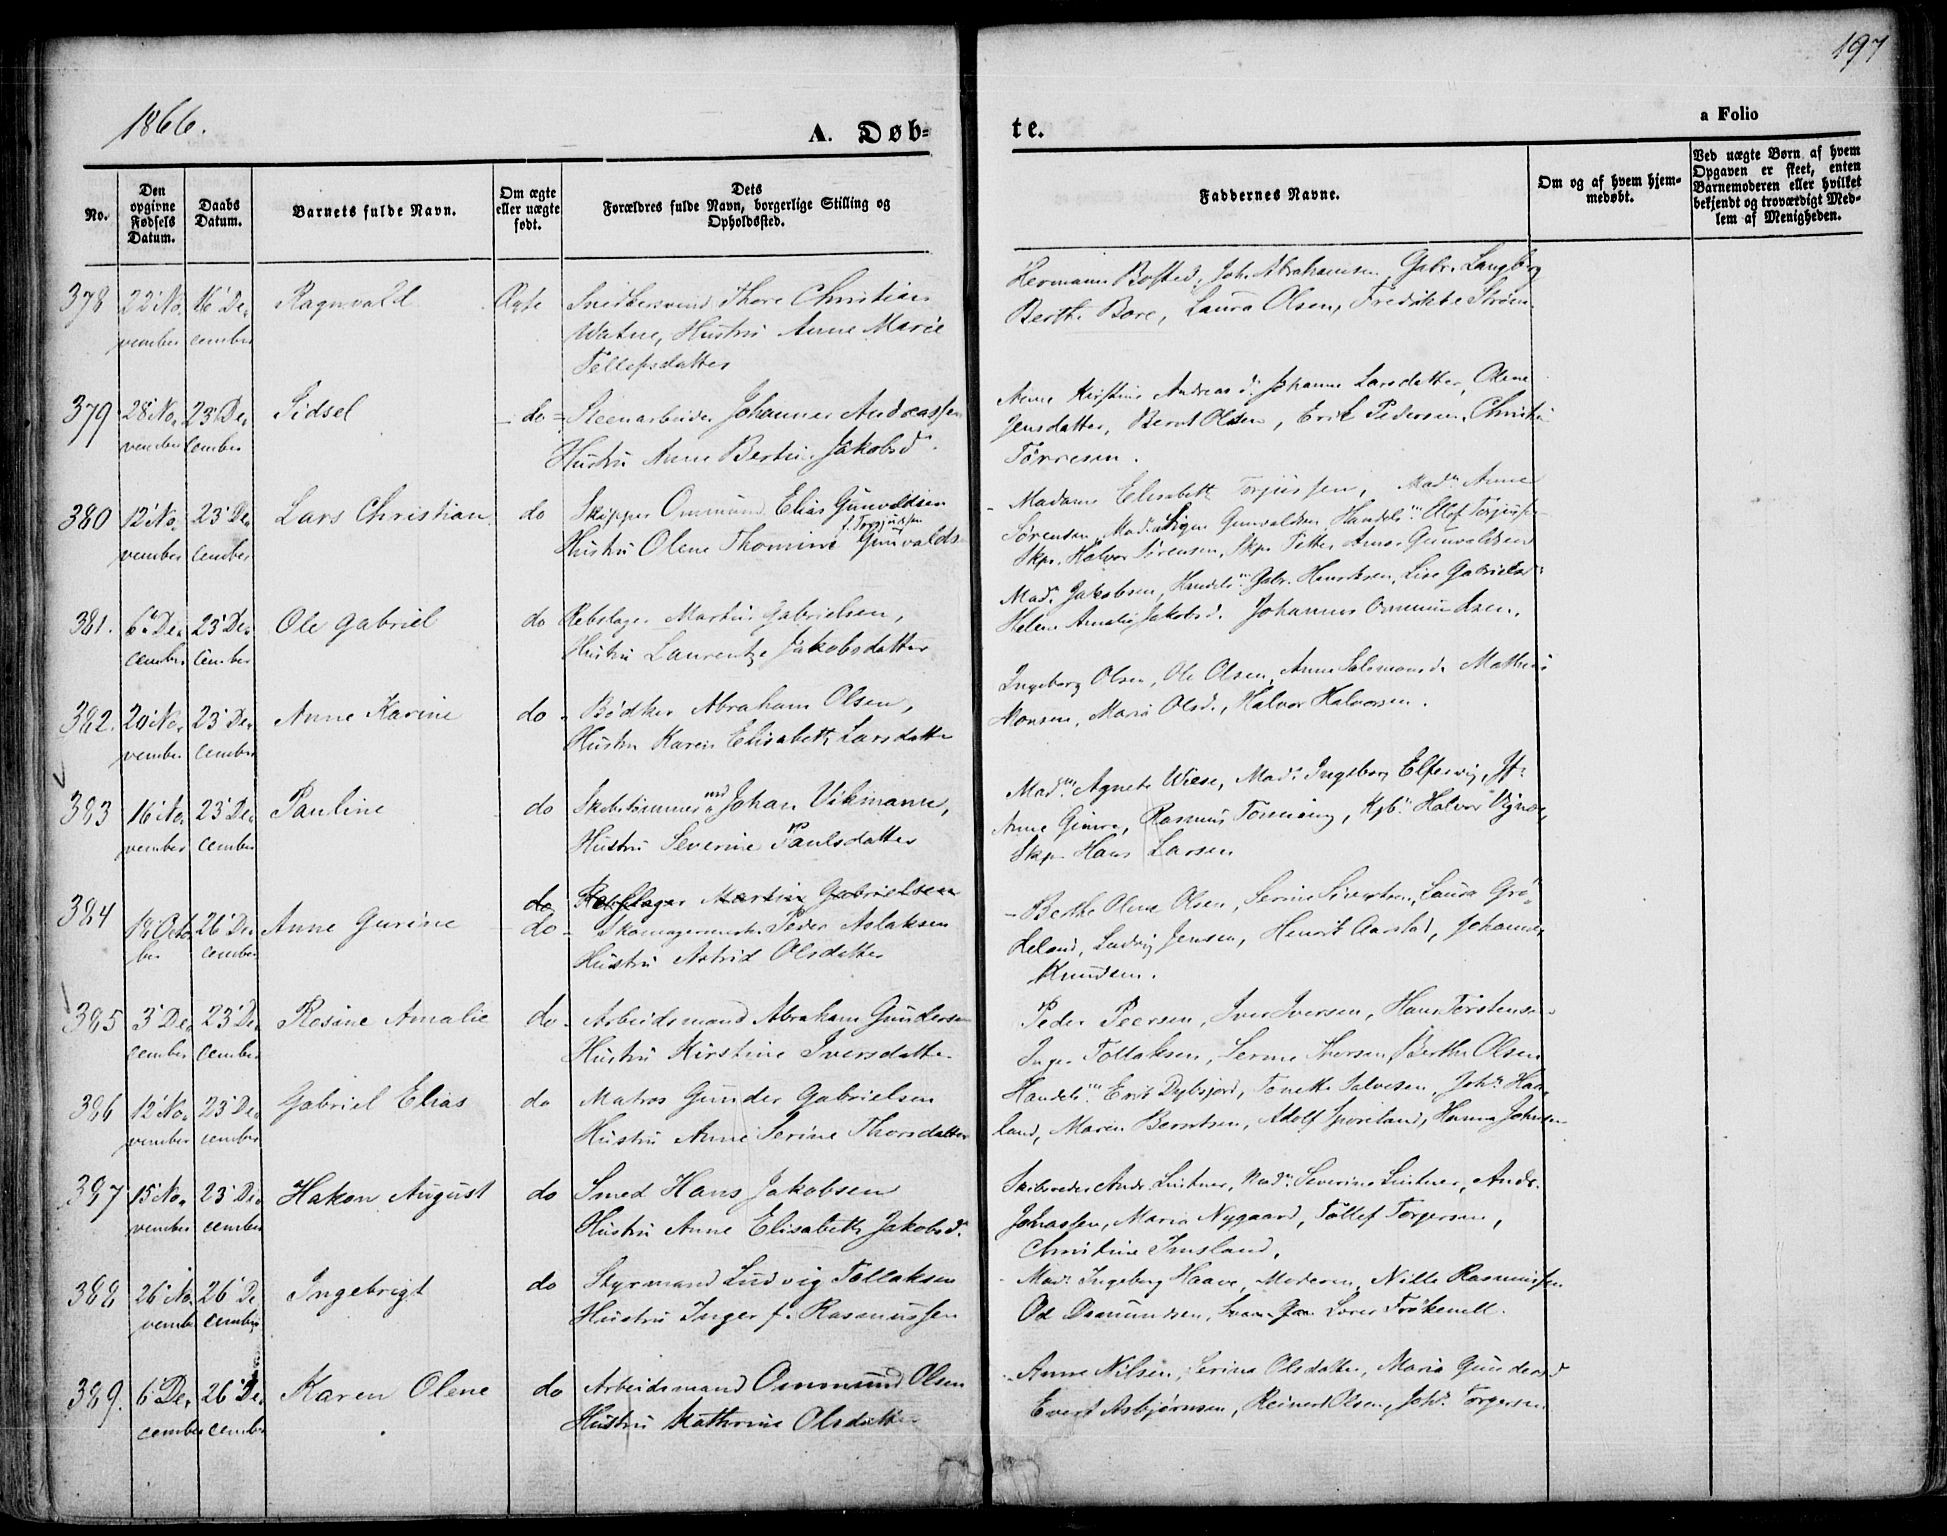 197
1866.
A. Døb=
te.
a Folio
No.
Den opgivne Fødsels Datum.
Daabs Datum.
Barnets fulde Navn.
Om ægte eller uægte født.
Dets Forældres fulde Navn, borgerlige Stilling og Opholdssted.
Faddernes Navne.
Om og af hvem hjemmedøbt.
Ved uægte Børn af hvem Opgaven er skeet, enten Barnemoderen eller hvilket bekjendt og troværdigt Medlem af Menigheden.
378 22' No- 16' De- Ragnvald Ægte Snedkersvend Thore Christian
vember cember Watne, Hustru Anne Marie
Tollefsdatter
Hermann Bofsted, Joh. Abrahamsen, Gabr. Langberg
Berthe Bore, Laura Olsen, Fredrikke Strøm
379 28' No- 23' De- Sidsel do Steenarbeider Johannes Andreassen
vember cember Hustru Anne Bertine Jakobsd.
Anne Kirstine Andreasd, Johanne Larsdatter, Olene
Jensdatter, Bernt Olsen, Erik Pedersen, Christi
Tørresen.
380 12' No- 23' De- Lars Christian do Skipper Ommund Elias Gunvaldsen
f. Torjussen
vember cember Hustru Olene Thomine Gunvalds-
Madame Elisabeth Torjussen, Madm Anne
Sørensen, Mad. Signe Gunvaldsen, Handelsm. Ellef Torjus-
Skpr. Halvor Sørensen, Skpr. Petter Amos Gunvaldsen
381. 6' De- 23' De- Ole Gabriel do Rebslager Martin Gabrielsen,
cember cember Hustru Laurentze Jakobsdatter
Mad. Jakobsen, Handelsm. Gabr. Henriksen, Lise Gabrielsd.
Helene Amalie Jakobsd. Johannes Ommundsen.
382. 20' No- 23' De- Anne Karine do Bødker Abraham Olsen,
vember cember Hustru Karen Elisabeth Larsdatter
Ingeborg Olsen, Ole Olsen, Anne Salomonsd. Mathias
Monsen, Maria Olsd., Halvor Halvorsen.
383 16' No- 23' De- Pauline do Skibstømmermd Johan Vikmann,
vember cember Hustru Severine Paulsdatter
Madm Agnete Wiese, Mad. Ingeborg Elfersvig, Jf.
Anne Gimre, Rasmus Tønning, Halvor
Skpr. Hans Larsen
384 18' Octo- 26' De- Anne Gurine do Rebslager Martin Gabrielsen
ber cember do Skomagermester Peder Aslaksen
Hustru Astrid Olsdatter
Berthe Olene Olsen, Serine Sivertsen, Laura Grø-
deland, Ludvig Jensen, Henrik Aarstad, Johannes
Knudsen.
385 3' De- 23' De- Rosine Amalie do Arbeidsmand Abraham Gundersen
cember cember Hustru Kirstine Iversdatter
Peder Peersen, Iver Iversen, Hans Torstensen
Inger Tollaksen, Serine Iversen, Berthe Olsen
386 12' No- 23' De- Gabriel Elias do Matros Gunder Gabrielsen
vember cember Hustru Anne Serine Thorsdatter
Handelsm. Erik Dybsjord, Tonette Salvesen, Johs. Haa-
land, Maren Berentsen, Adolf Sporeland, Hanna Johnsen
387 15' No- 23' De- Hakon August do Smed Hans Jakobsen
vember cember Hustru Anne Elisabeth Jakobsd.
Skibsreder Andr. Lintner, Mad. Severine Lintner, Andr.
Johassen, Maria Nygaard, Tollef Torgersen,
Christine Imsland.
388 26' No- 26' De- Ingebrigt do Styrmand Ludvig Tollaksen
vember cember Hustru Inger f. Rasmussen
Mad. Ingeborg Haave, Moderen, Nille Rasmussen
Od Osmundsen,
389. 6' De- 26' De- Karen Olene do Arbeidsmand Ommund Olsen
cember cember Hustru Kathrine Olsdatter
Anne Nilsen, Serina Olsdatter, Maria Gundersd
Evert Asbjørnsen, Reinert Olsen, Johs. Torgersen